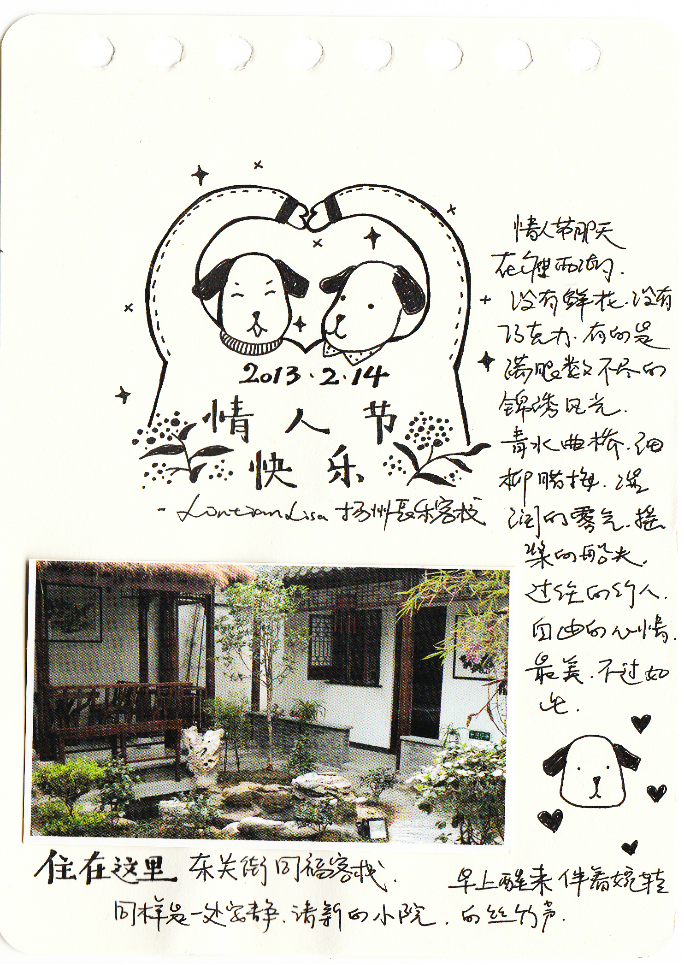 2013·2·14
情人节
快乐
-LontianLisa 扬州长乐客栈
情人节那天
在瘦西湖.
没有鲜花.没有
巧克力.有的是
满眼数不尽的
锦绣风光.
青水曲桥.细
柳腊梅.湿
润的雾气.摇
桨的船夫.
过往的行人.
自由的心情.
最美.不过如
此.
住在这里 东关街同福客栈.
同样是一处安静.清新的小院.
早上醒来伴着婉转
的丝竹声.